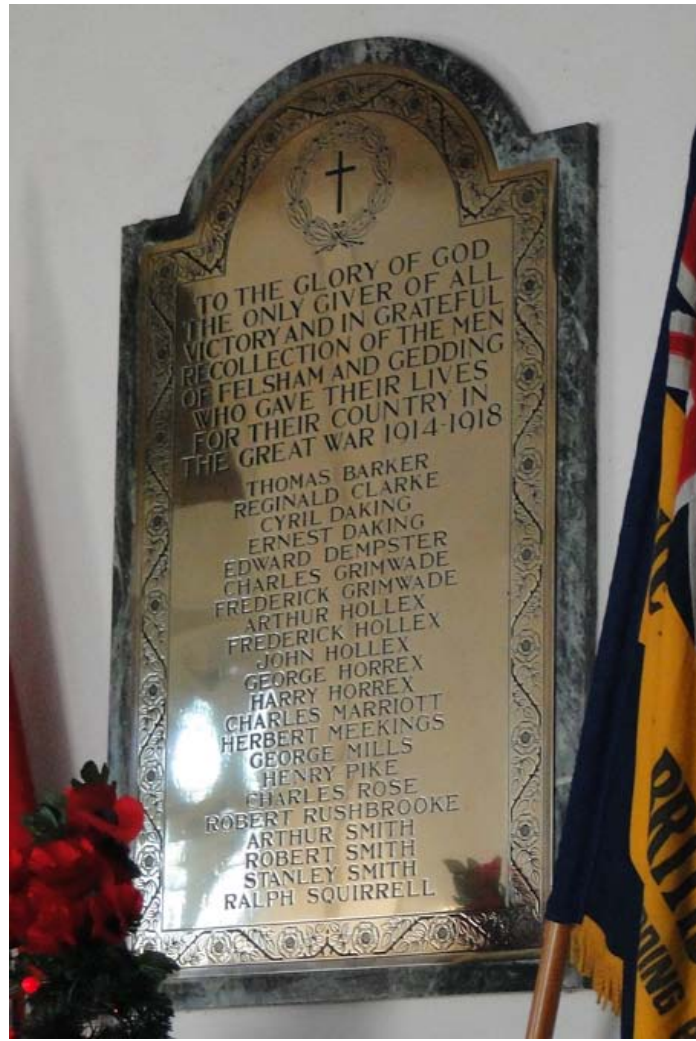 TO THE GLORY OF GOD
THE ONLY GIVER OF ALL
VICTORY AND IN GRATEFUL
RECOLLECTION OF THE MEN
OF FELSHAM AND GEDDING
WHO GAVE THEIR LIVES
FOR THEIR COUNTRY IN
THE GREAT WAR 1914-1918
THOMAS BARKER
REGINALD CLARKE
CYRIL DAKING
ERNEST DAKING
EDWARD DEMPSTER
CHARLES GRIMWADE
FREDERICK GRIMWADE
ARTHUR HOLLEX
FREDERICK HOLLEX
JOHN HOLLEX
GEORGE HORREX
HARRY HORREX
CHARLES MARRIOTT
HERBERT MEEKINGS
GEORGE MILLS
HENRY PIKE
CHARLES ROSE
ROBERT RUSHBROOKE
ARTHUR SMITH
ROBERT SMITH
STANLEY SMITH
RALPH SQUIRRELL